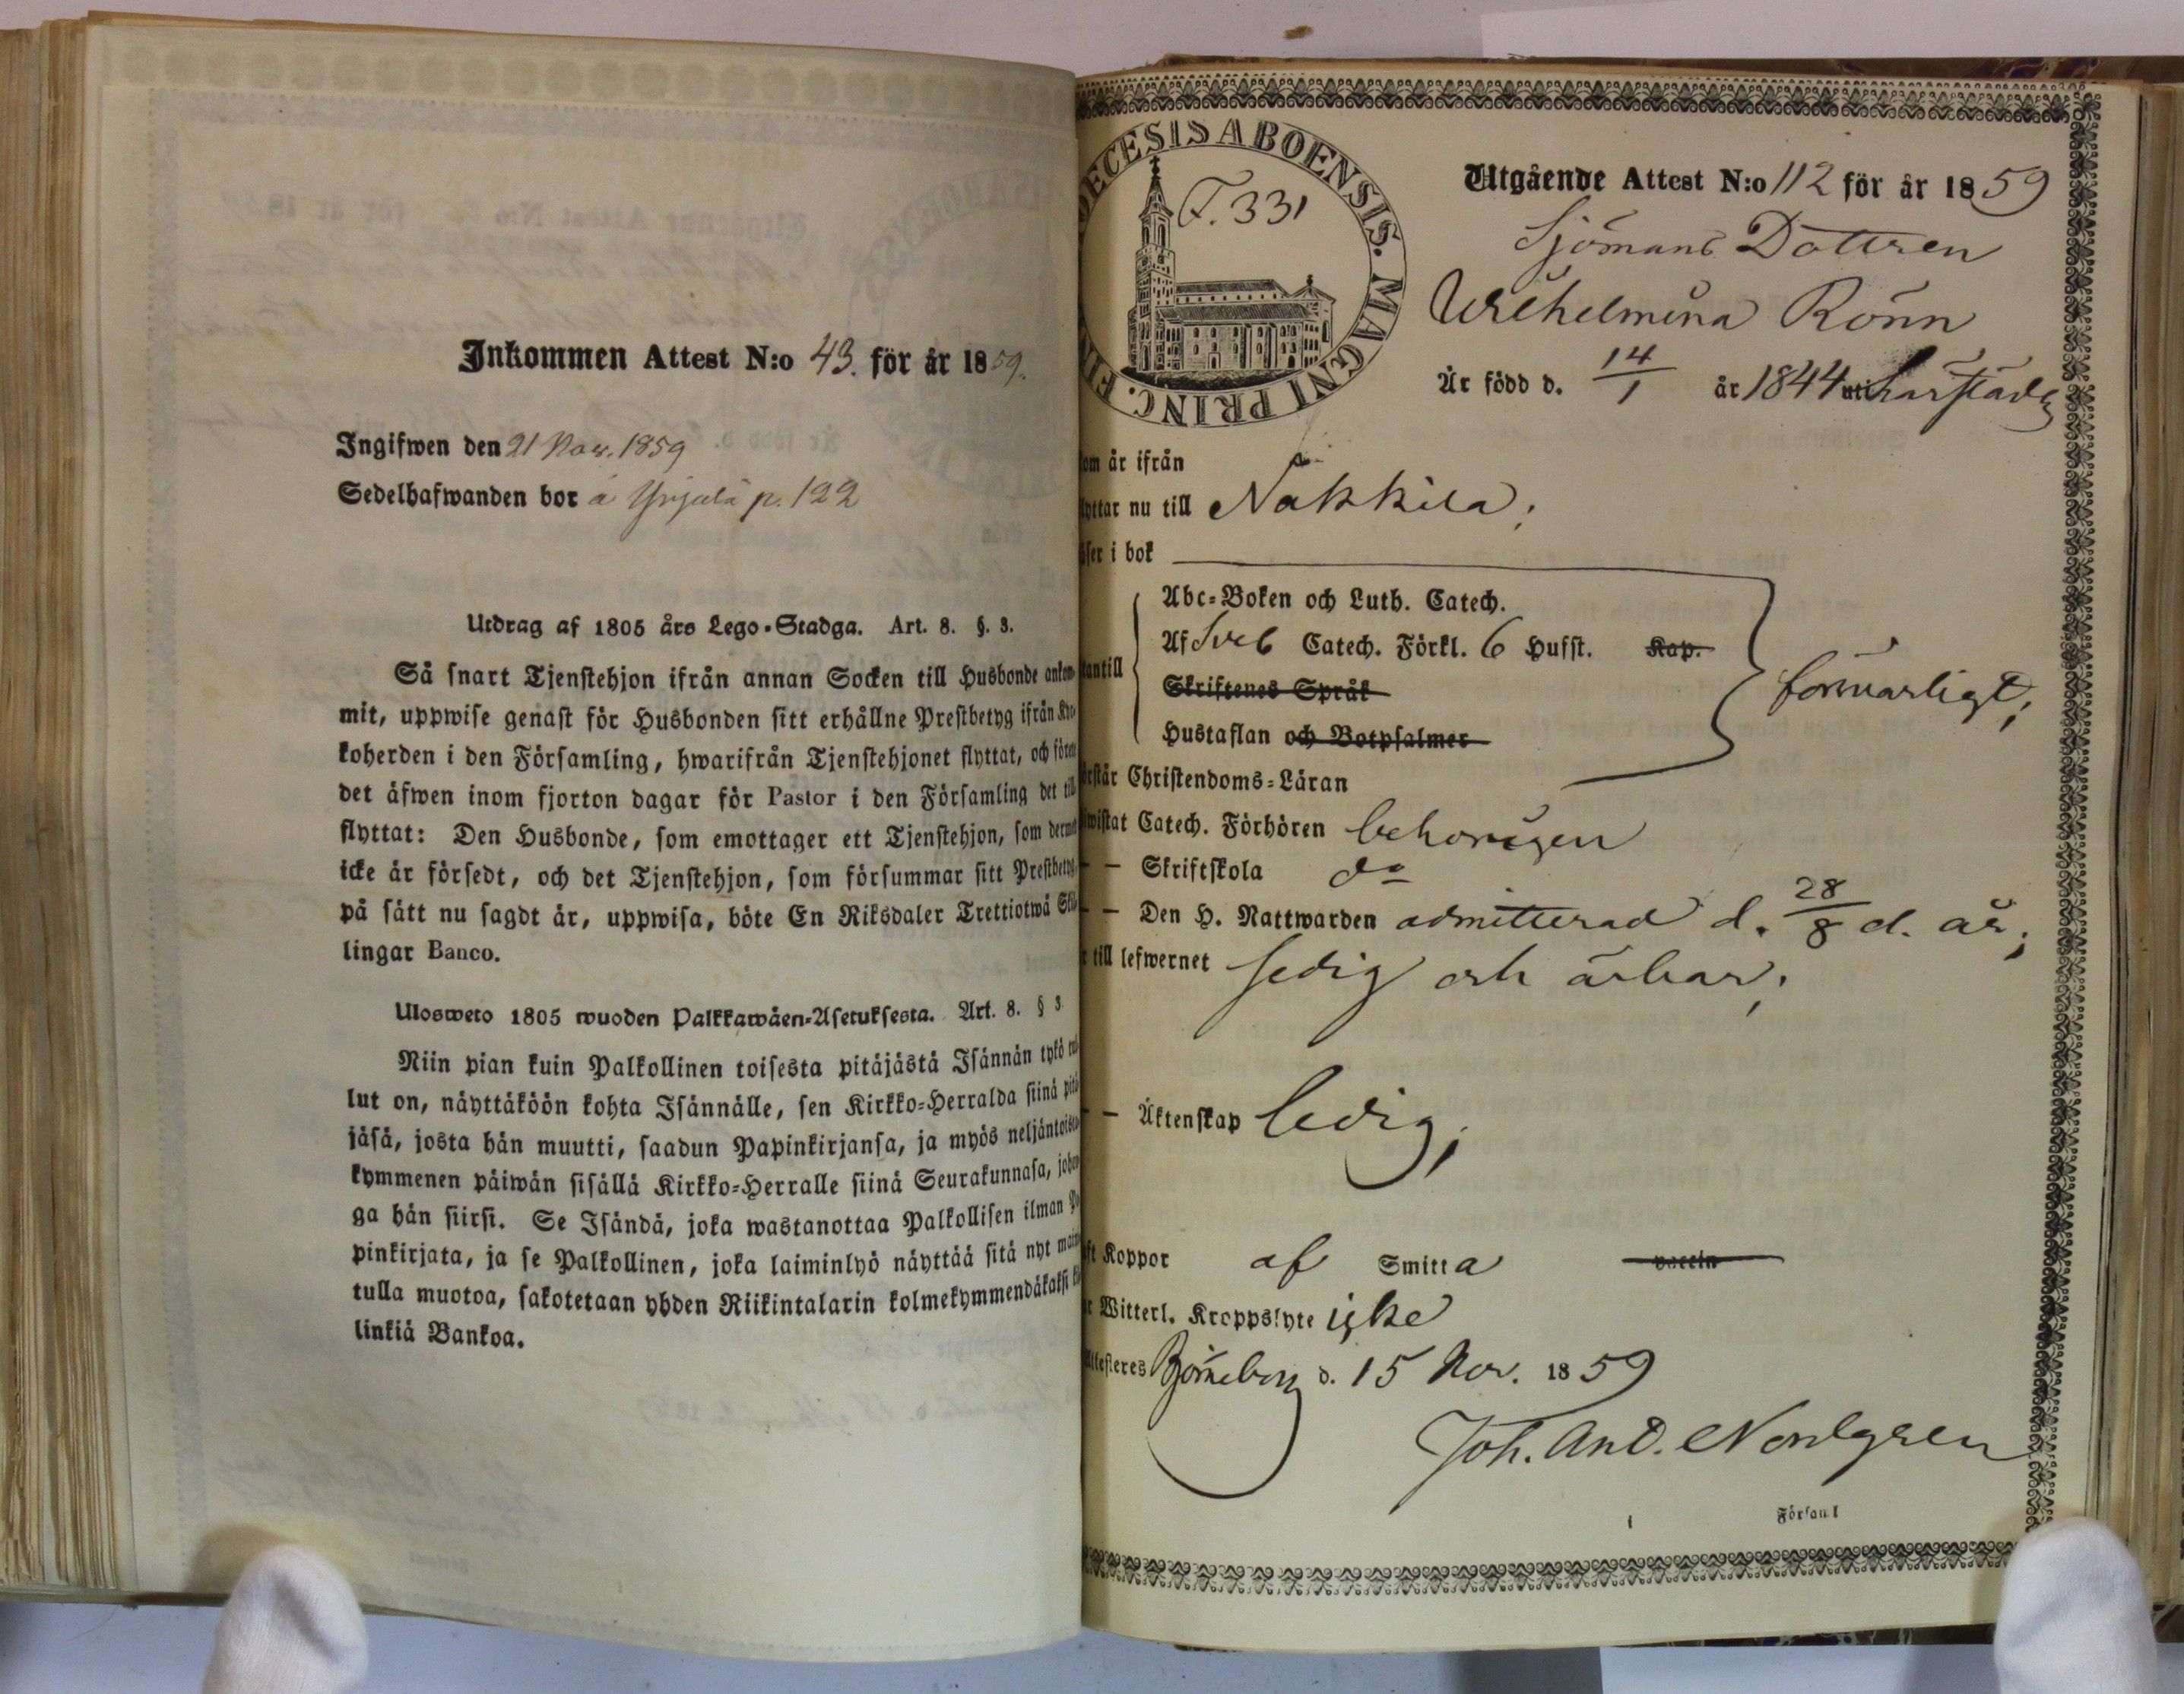 Inkommen Attest N:o 43. för år 1859.
Ingifwen den 21 Nov. 1859
Sedelhafwanden bor å Yrjälä p. 122
Utdrag af 1805 års Lego-Stadga. Art. 8. §. 3.
Så snart Tjenstehjon ifrån annan Socken till Husbonde ankom-
mit, uppwise genast för Husbonden sitt erhållne Prestbetyg ifrån
koherden i den Församling, hwarifrån Tjenstehjonet flyttat, och
det äfwen inom fjorton dagar för Pastor i den Församling det
flyttat: Den Husbonde, som emottager ett Tjenstehjon, som
icke är försedt, och det Tjenstehjon, som försummar sitt Prestbetyg
på sätt nu sagdt är, uppwisa, böte En Riksdaler Trettiotwå
lingar Banco.
Ulosweto 1805 wuoden Palkkawäen-Asetuksesta. Art. 8. § 3
Niin pian kuin Palkollinen toisesta pitäjästä Isännän tykö
lut on, näyttäköön kohta Isännälle, sen Kirkko-Herralda siinä
jäsä, josta hän muutti, saadun Papinkirjansa, ja myös neljäntoista
kymmenen päiwän sisällä Kirkko-Herralle siinä Seurakunnasa,
ga hän siirsi. Se Isändä, joka wastanottaa Palkollisen ilman
pinkirjata, ja se Palkollinen, joka laiminlyö näyttää sitä nyt
tulla muotoa, sakotetaan yhden Riikintalarin kolmekymmendäkaksi
linkiä Bankoa.
DECESIS ABOENSIS. MAGNI PRINC. FIN
F. 331
Utgående Attest N:o 112 för år 1859
Sjömans Dottren
Wilhelmina Rönn
Är född d. 14/1 år 1844 härstädes
om är ifrån
lyttar nu till Nakkila;
äser i bok
Abc-Boken och Luth. Catech.
Af Sveb Catech. Förkl. 6 Husst. Kap.
antill
Skriftenes Språk
Hustaflan och Botpsalmer
försvarligt;
rstår Christendoms-Läran
wistat Catech. Förhören behörigen
— Skriftskola do
— Den H. Nattwarden admitterad d. 28/8 d. år;
r till lefwernet sedig och ärbar;
— Äktenskap ledig;
ft Koppor af Smitta vaccin
r Witterl. Kroppslyte icke
ttesteres Björneborg d. 15 Nov. 1859
Joh. And. Nordgren
Församl